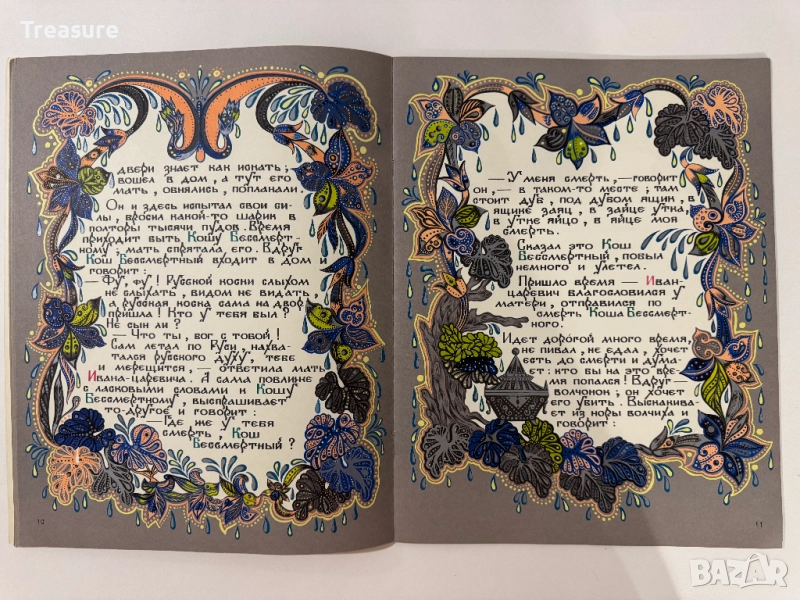 Treasure
двери знает как искать;
вошел в дом, а тут его
мать, обнялись, поплакали.
Он и здесь испытал свои си-
лы, бросил какой-то шарик в
полторы тысячи пудов. Время
приходит быть Кошу Бессмерт-
ному; мать спрятала его. Вдруг
Кош Бессмертный входит в дом и
говорит:
— Фу, фу! Русской коски слыхом
не слыхать, видом не видать,
а русская коска сама на двор
пришла! Кто у тебя был?
Не сын ли?
— Что ты, бог с тобой!
Сам летал по Руси, нахва-
тался русского духу, тебе
и мерещится, — ответила мать
Ивана-царевича. А сама поближе
с ласковыми словами к Кошу
Бессмертному, выспрашивает
то-другое и говорит:
— Где же у тебя
смерть, Кош
Бессмертный?
10
— У меня смерть, — говорит
он, — в таком-то месте; там
стоит дуб, под дубом ящик, в
ящике заяц, в зайце утка,
в утке яйцо, в яйце моя
смерть.
Сказал это Кош
Бессмертный, побыл
немного и улетел.
Пришло время — Иван-
царевич благословился у
матери, отправился по
смерть Коша Бессмерт-
ного.
Идет дорогой много время,
не пивал, не едал, хочет
есть до смерти и дума-
ет: кто бы на это вре-
мя попался! Вдруг —
волчонок; он хочет
его убить. Выскакива-
ет из норы волчиха и
говорит:
11
BAZAR